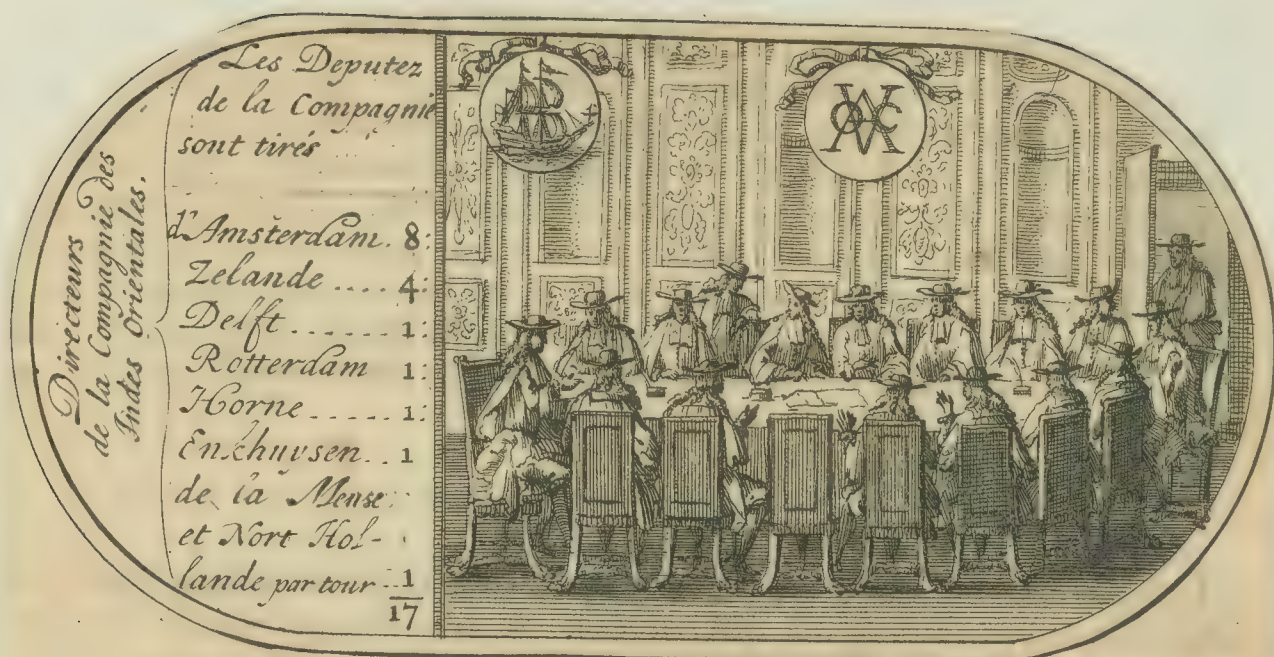 Directeurs
de la Compagnie des
Indes Orientales.
Les Deputez
de la Compagnie
sont tirés
d'Amsterdam. 8:
Zelande .... 4:
Delft ....... 1:
Rotterdam 1:
Horne ...... 1:
Enkhuysen .. 1
de la Mense
et Nort Hol-
lande par tour .. 1
17
VOC A